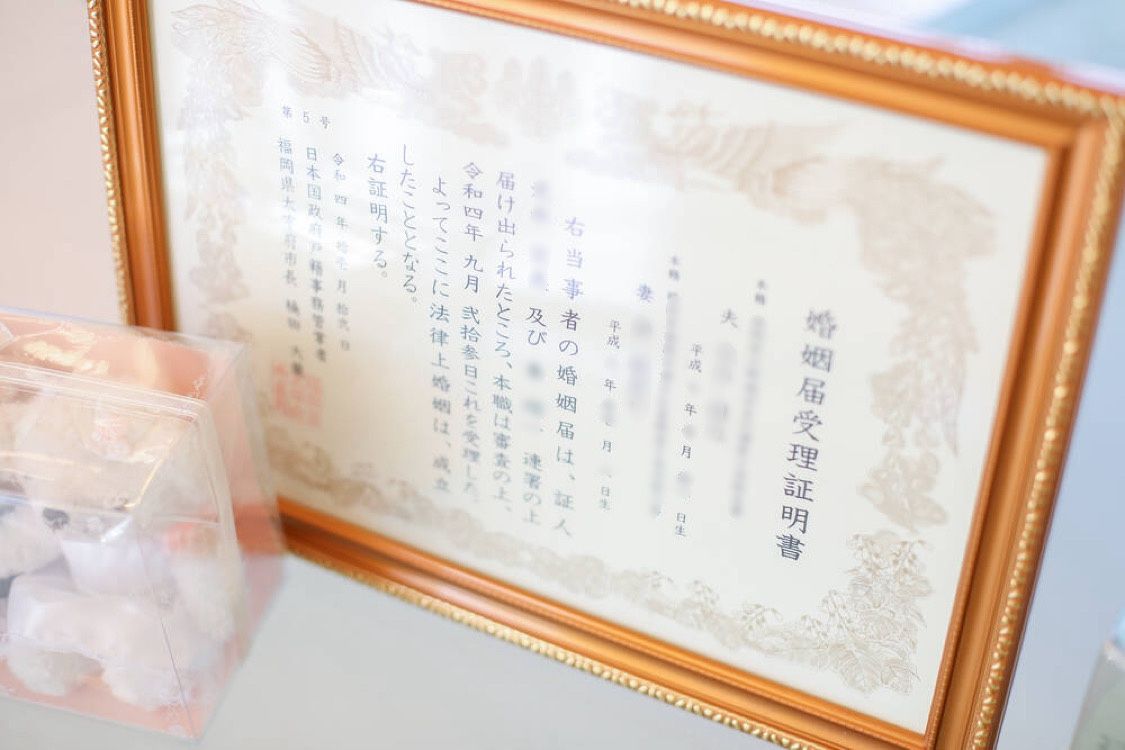 婚姻届受理証明書
本籍
夫
平成 年 月 日生
本籍
妻
平成 年 月 日生
右当事者の婚姻届は、証人
及び 連署の上
届け出られたところ、本職は審査の上、
令和四年九月弐拾参日これを受理した。
よってここに法律上婚姻は、成立
したこととなる。
右証明する。
令和四年拾壱月拾六日
第5号
日本国政府戸籍事務管掌者
福岡県太宰府市長 楠田 大蔵